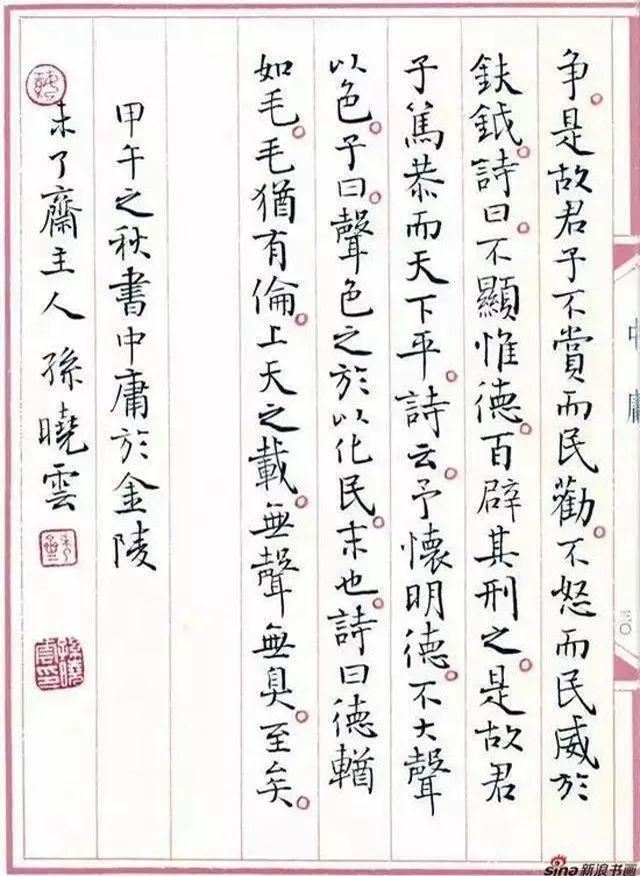 争。是故君子不賞而民勸。不怒而民威於
鈇鉞。詩曰。不顯惟德。百辟其刑之。是故君
子篤恭而天下平。詩云。予懷明德。不大聲
以色。子曰。聲色之於以化民。末也。詩曰德輶
如毛。毛猶有倫。上天之載。無聲無臭。至矣。
甲午之秋書中庸於金陵
未了齋主人孫曉雲
孫曉雲印
中庸
三〇
sina新浪书画